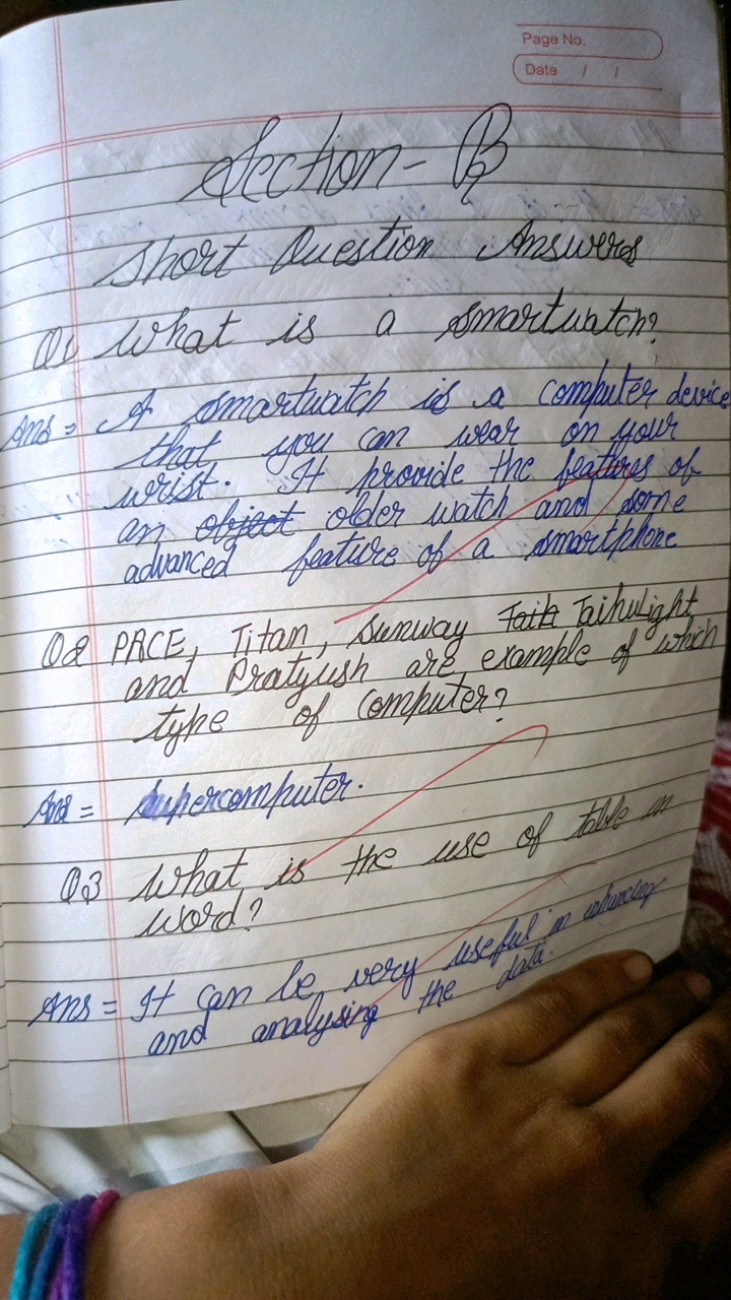 Page No.
Date / /
Section - B
Short Question Answers
Q1 What is a smartwatch?
Ans = A smartwatch is a computer device
that you can wear on your
wrist. It provide the features of
an object older watch and some
advanced feature of a smartphone
Q2 PACE, Titan, Sunway Taih Taihulight
and Pratyush are example of which
type of computer?
Ans = Supercomputer.
Q3 What is the use of table in
word?
Ans = It can be very useful in enhancing
and analysing the data.